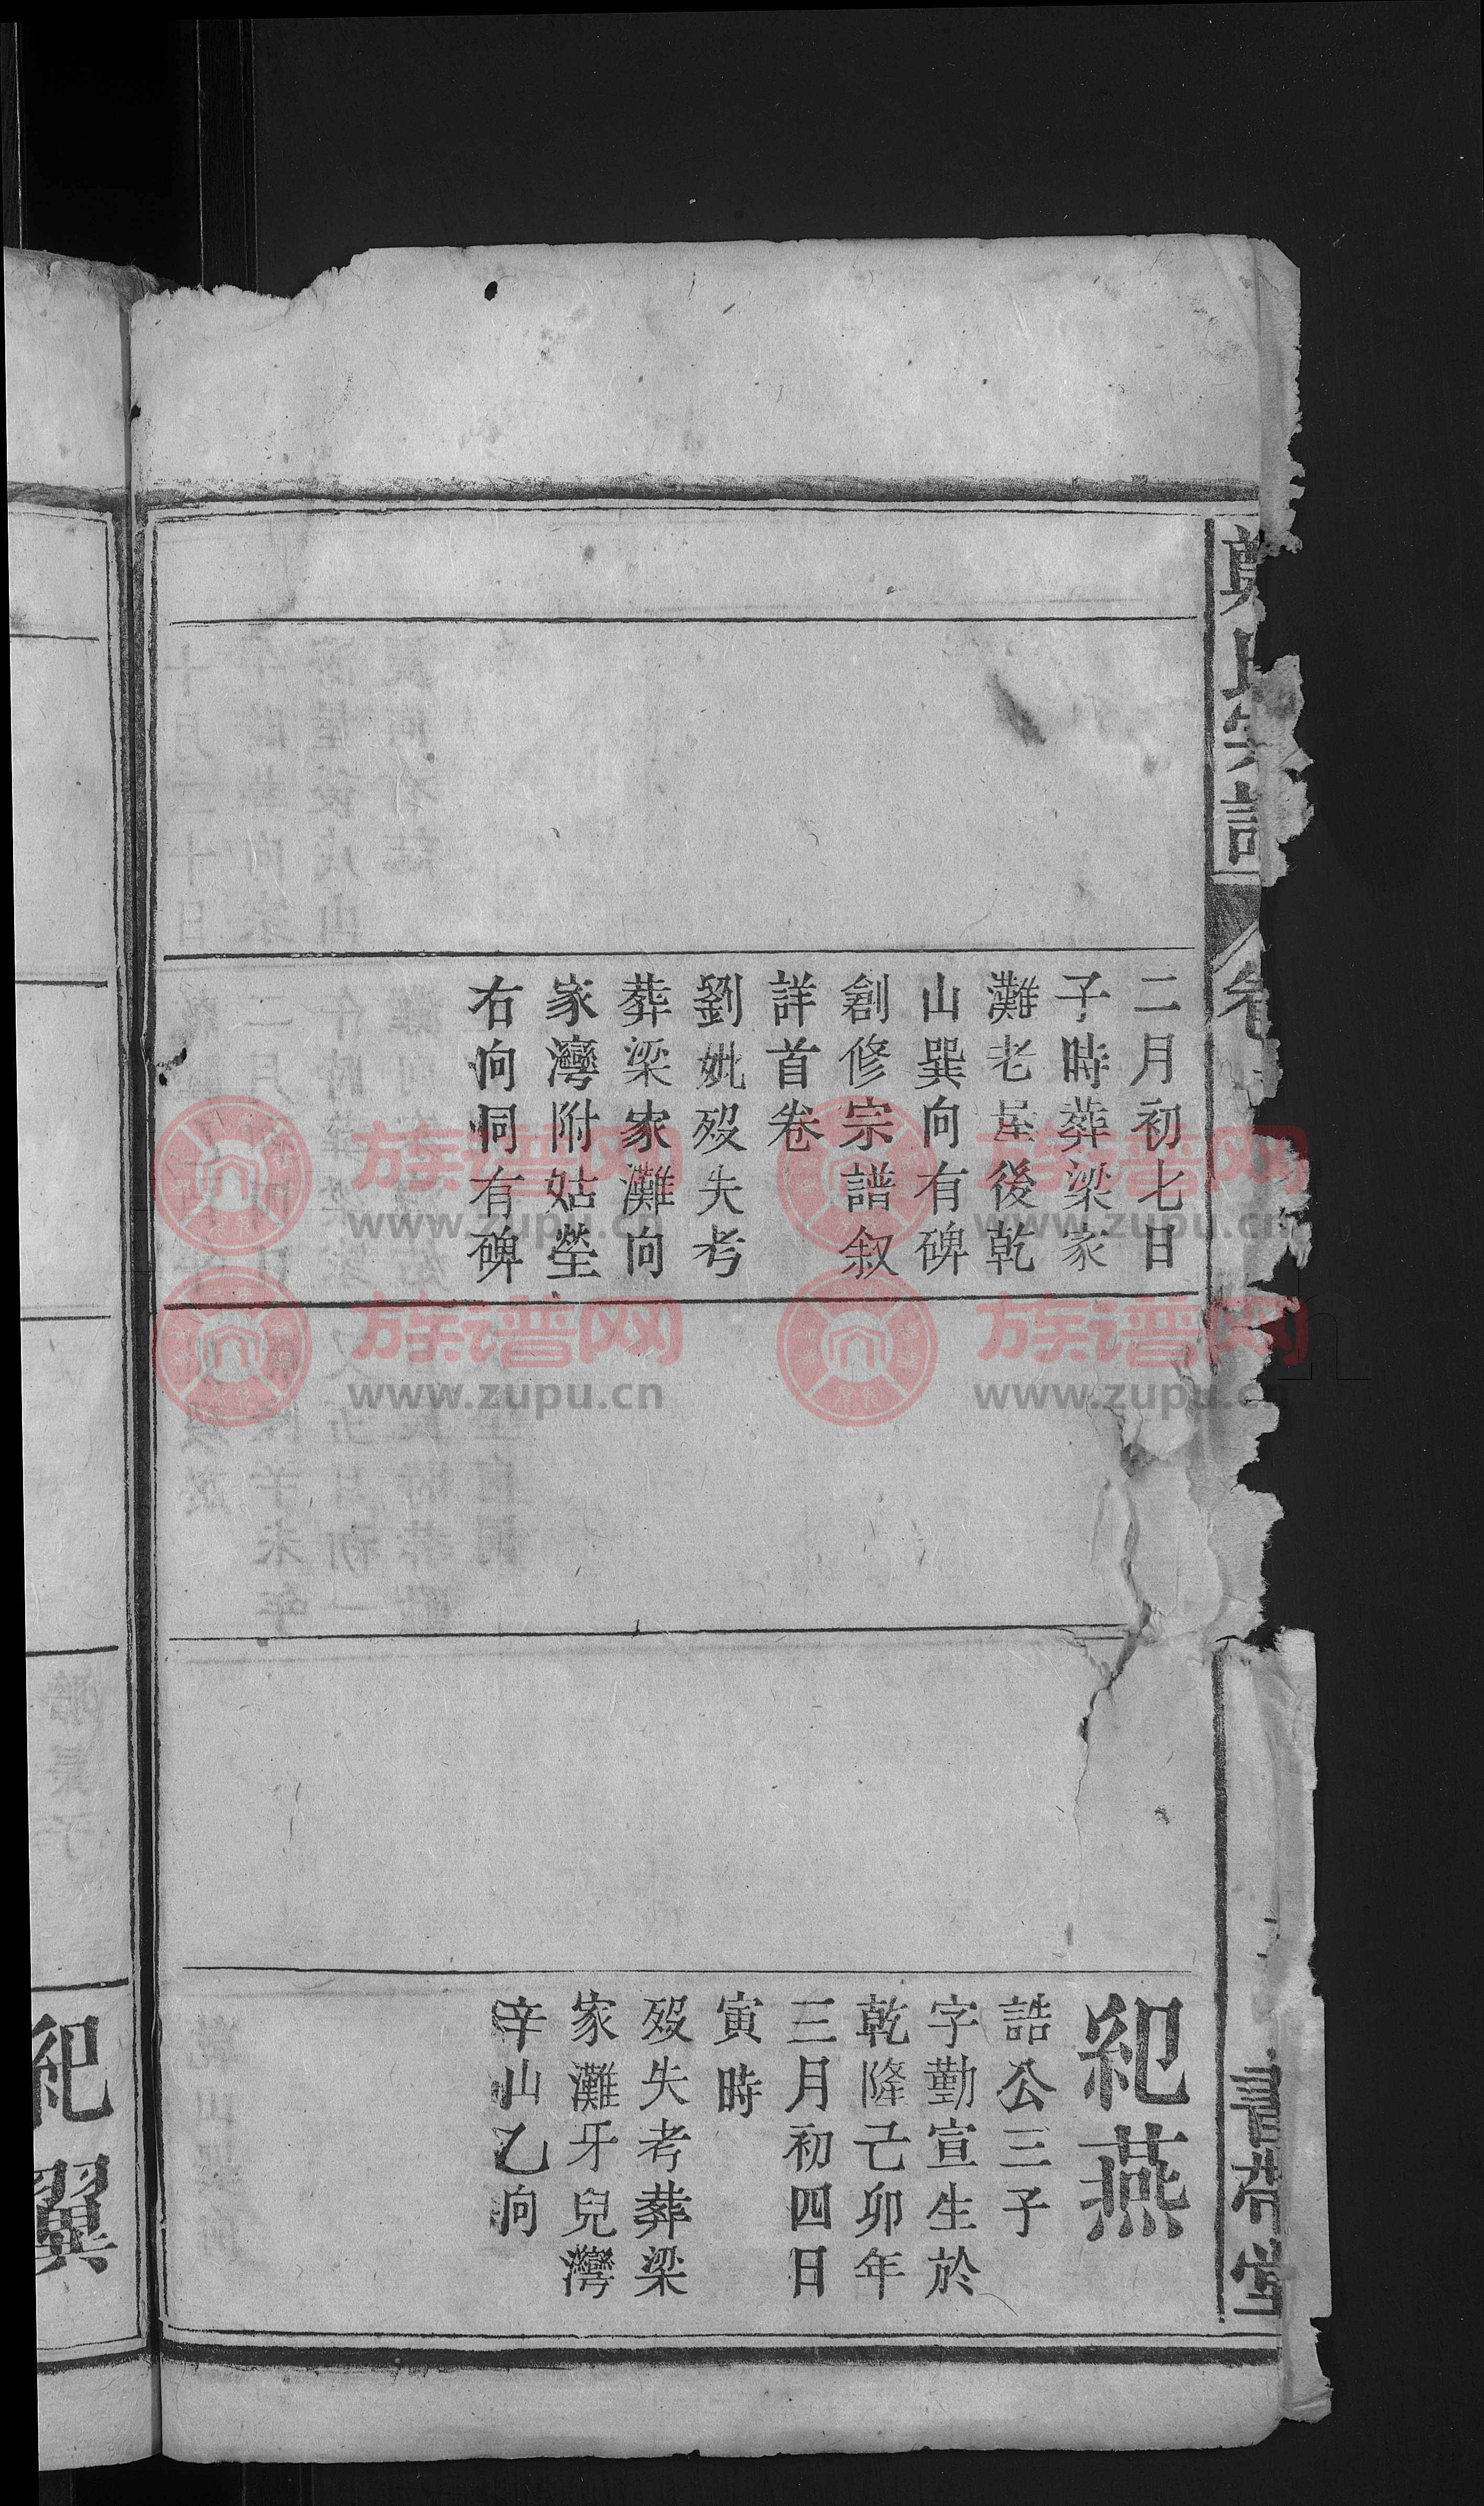 鄭氏宗譜
卷
書帶堂
二月初七日
子時葬梁家
灘老屋後乾
山巽向有碑
創修宗譜叙
詳首卷
劉妣歿失考
葬梁家灘向
家灣附姑塋
右向同有碑
紀燕
誥公三子
字勤宣生於
乾隆己卯年
三月初四日
寅時
歿失考葬梁
家灘牙兒灣
辛山乙向
紀翼
族谱网
www.zupu.cn
族谱网
www.zupu.cn
族谱网
www.zupu.cn
族谱网
www.zupu.cn